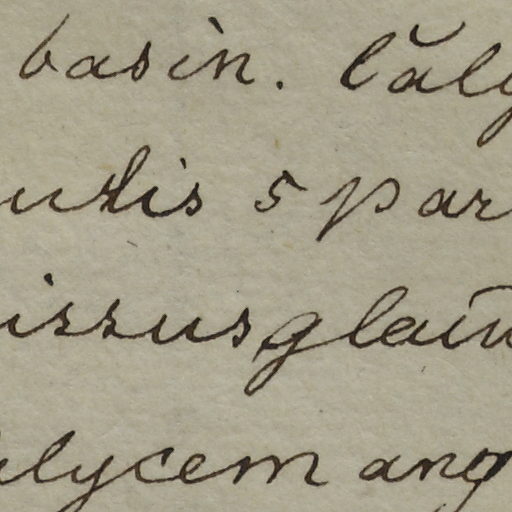 basin. Căly
utis 5 par
issus glau
alycem ang